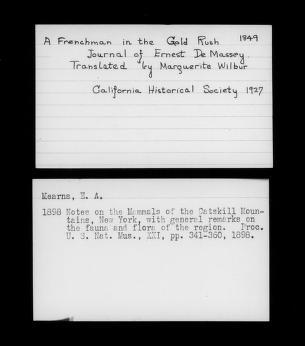 A Frenchman in the Gold Rush 1849
Journal of Ernest De Massey
Translated by Marguerite Wilbur
California Historical Society 1927
Mearns, E. A.
1898 Notes on the Mammals of the Catskill Moun-
tains, New York, with general remarks on
the fauna and flora of the region. Proc.
U. S. Nat. Mus., XXI, pp. 341-360, 1898.